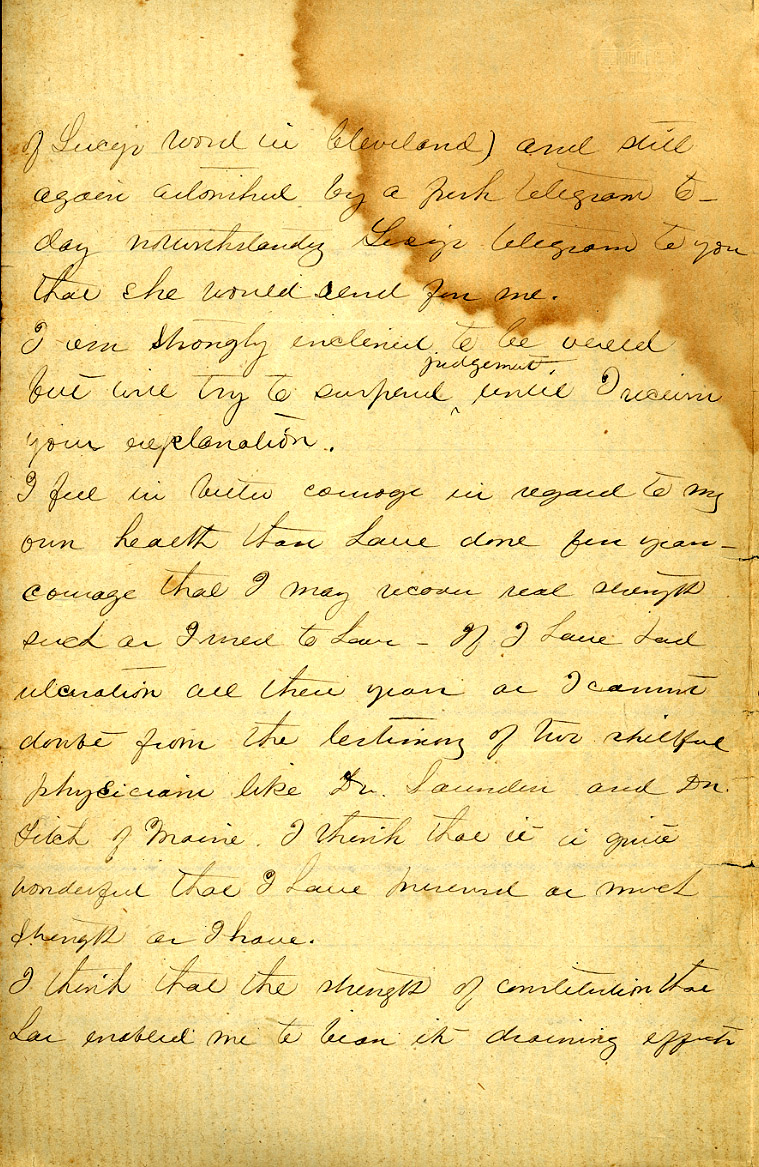 of Lucy's word in Cleveland) and still
again astonished by a fresh telegram to-
day notwithstanding Lucy's telegram to you
that she would send for me.
I am strongly inclined to be vexed
judgement
but will try to suspend ^ until I receive
your explanation.
I feel in better courage in regard to my
own health than have done for years—
courage that I may recover real strength
such as I used to have – If I have had
ulceration all these years as I cannot
doubt from the testimony of two skillful
physicians like Dr. Saunders and Dr.
Fitch of Maine. I think that it is quite
wonderful that I have preserved as much
strength as I have.
I think that the strength of constitution that
has enabled me to bear its draining effects